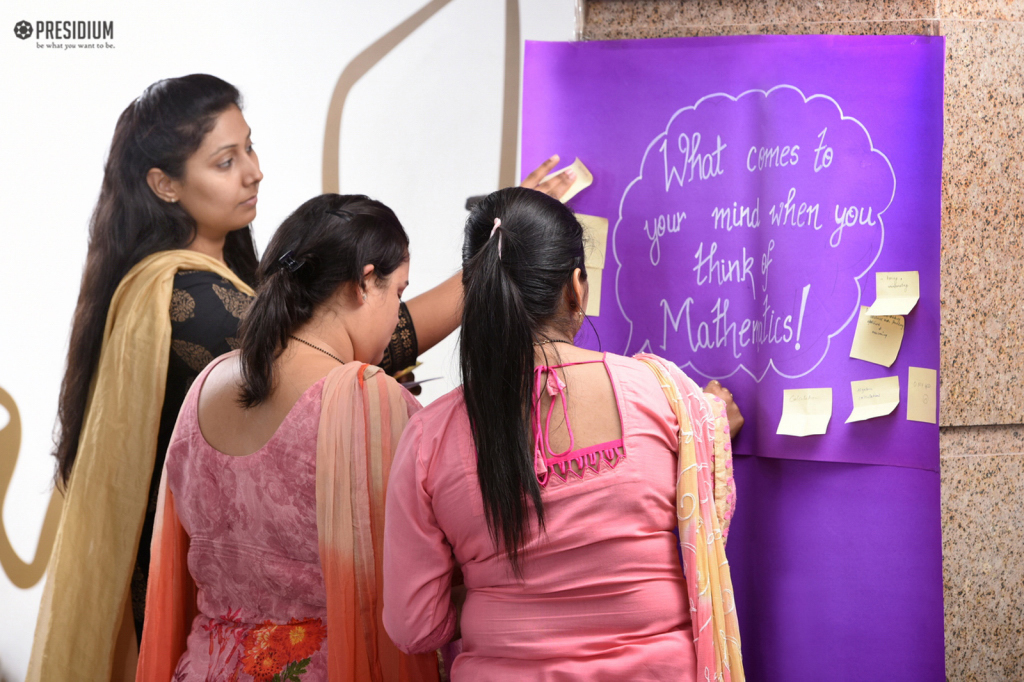 PRESIDIUM
be what you want to be.
What comes to
your mind when you
think of
Mathematics!